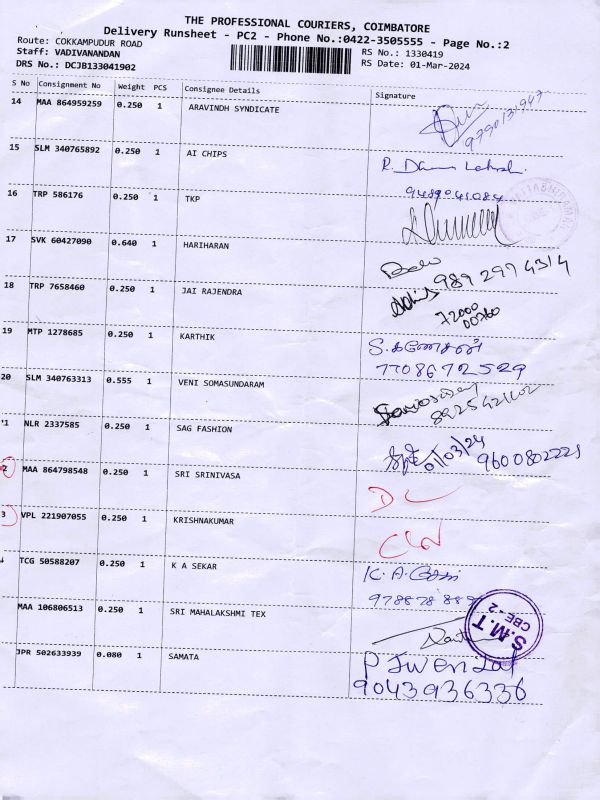 THE PROFESSIONAL COURIERS, COIMBATORE
Delivery Runsheet - PC2 - Phone No.:0422-3505555 - Page No.:2
Route: COKKAMPUDUR ROAD RS No.: 1330419
Staff: VADIVANANDAN RS Date: 01-Mar-2024
DRS No.: DCJB133041902
S No Consignment No Weight PCS Consignee Details Signature
14 MAA 864959259 0.250 1 ARAVINDH SYNDICATE
15 SLM 340765892 0.250 1 AI CHIPS
9489041084
16 TRP 586176 0.250 1 TKP
17 SVK 60427090 0.640 1 HARIHARAN
989 297 4314
18 TRP 7658460 0.250 1 JAI RAJENDRA
72000
19 MTP 1278685 0.250 1 KARTHIK
7708672529
20 SLM 340763313 0.555 1 VENI SOMASUNDARAM
8925421602
21 NLR 2337585 0.250 1 SAG FASHION
01/03/24 9600802221
2 MAA 864798548 0.250 1 SRI SRINIVASA
DL
3 VPL 221907055 0.250 1 KRISHNAKUMAR
TCG 50588207 0.250 1 K A SEKAR
K. A.
MAA 106806513 0.250 1 SRI MAHALAKSHMI TEX
S.M.T
CBE-2
JPR 502633939 0.080 1 SAMATA
9043936336